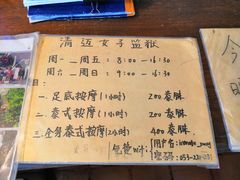 清迈女子监狱
周一 - 周五：8:00 - 16:30
周六 - 周日：9:00 - 16:30
一. 足底按摩(1小时) 200泰铢
二. 泰式按摩(1小时) 200泰铢
三. 全身泰式按摩(2小时) 400泰铢
免费WiFi：
用户名：
密码：053-221-231
今